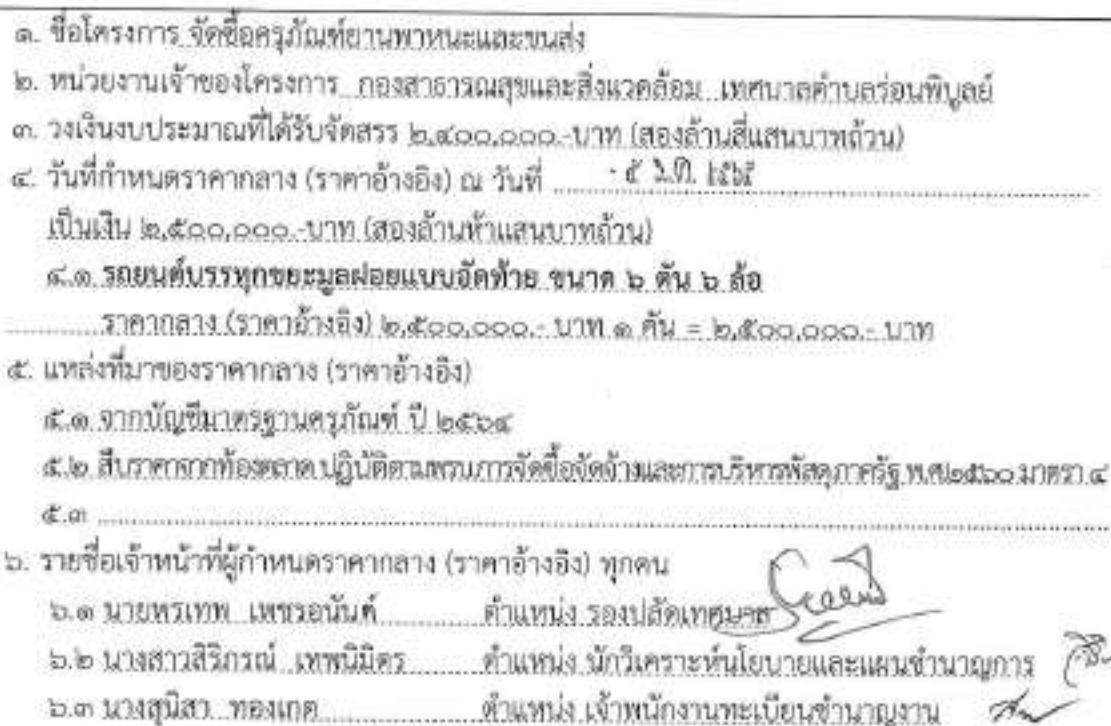 ๑. ชื่อโครงการ จัดซื้อครุภัณฑ์ยานพาหนะและขนส่ง
๒. หน่วยงานเจ้าของโครงการ กองสาธารณสุขและสิ่งแวดล้อม เทศบาลตำบลร่อนพิบูลย์
๓. วงเงินงบประมาณที่ได้รับจัดสรร ๒,๔๐๐,๐๐๐.-บาท (สองล้านสี่แสนบาทถ้วน)
๔. วันที่กำหนดราคากลาง (ราคาอ้างอิง) ณ วันที่ - ๕ ๒๕๖๕
เป็นเงิน ๒,๕๐๐,๐๐๐.-บาท (สองล้านห้าแสนบาทถ้วน)
๔.๑ รถยนต์บรรทุกขยะมูลฝอยแบบอัดท้าย ขนาด ๖ ตัน ๖ ล้อ
ราคากลาง (ราคาอ้างอิง) ๒,๕๐๐,๐๐๐.- บาท ๑ คัน = ๒,๕๐๐,๐๐๐.- บาท
๕. แหล่งที่มาของราคากลาง (ราคาอ้างอิง)
๕.๑ จากบัญชีมาตรฐานครุภัณฑ์ ปี ๒๕๖๔
๕.๒ สืบราคาจากท้องตลาด ปฏิบัติตามพรบการจัดซื้อจัดจ้างและการบริหารพัสดุภาครัฐ พ.ศ.๒๕๖๐ มาตรา ๔
๕.๓
๖. รายชื่อเจ้าหน้าที่ผู้กำหนดราคากลาง (ราคาอ้างอิง) ทุกคน
๖.๑ นายหรเทพ เพชรอนันต์ ตำแหน่ง รองปลัดเทศบาล
๖.๒ นางสาวสิริภรณ์ เทพนิมิตร ตำแหน่ง นักวิเคราะห์นโยบายและแผนชำนาญการ
๖.๓ นางสุนิสา ทองเกต ตำแหน่ง เจ้าพนักงานทะเบียนชำนาญงาน